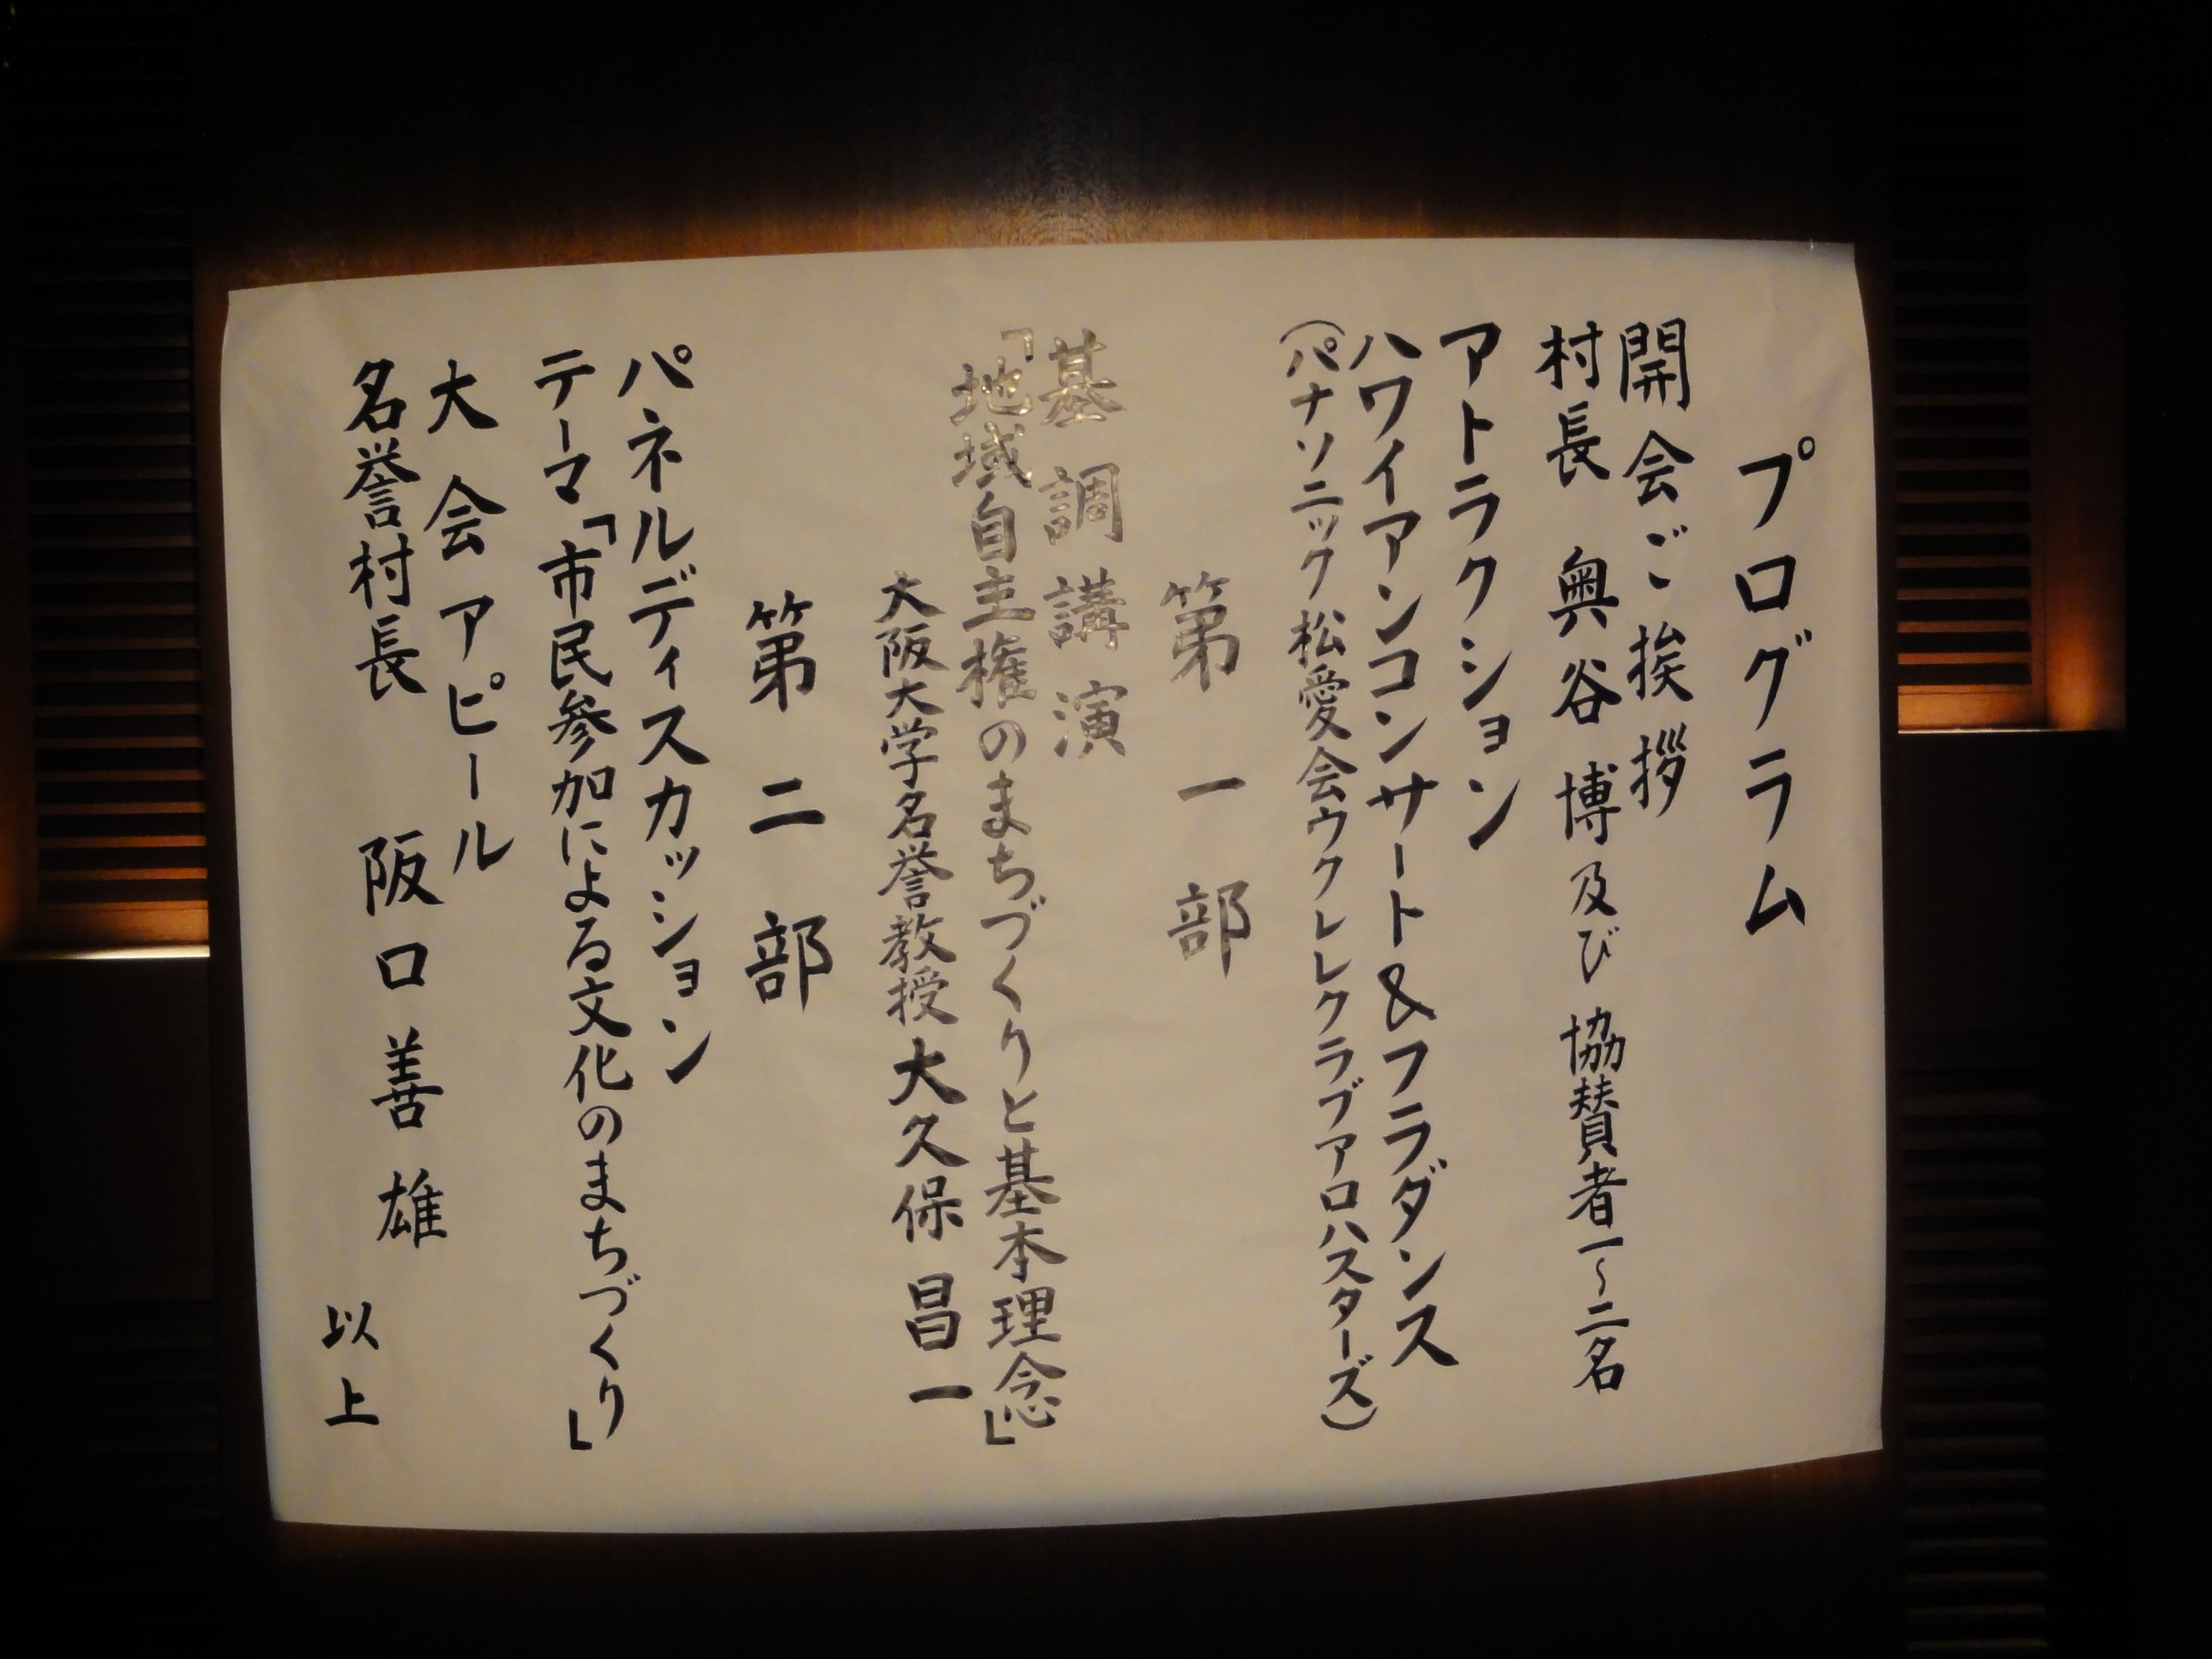 プログラム
開会ご挨拶
村長 奥谷 博 及び 協賛者一～二名
アトラクション
ハワイアンコンサート&フラダンス
(パナソニック松愛会ウクレレクラブアロハスターズ)
第一部
基調講演
「地域自主権のまちづくりと基本理念」
大阪大学名誉教授 大久保昌一
第二部
パネルディスカッション
テーマ「市民参加による文化のまちづくり」
大会アピール
名誉村長 阪口善雄
以上